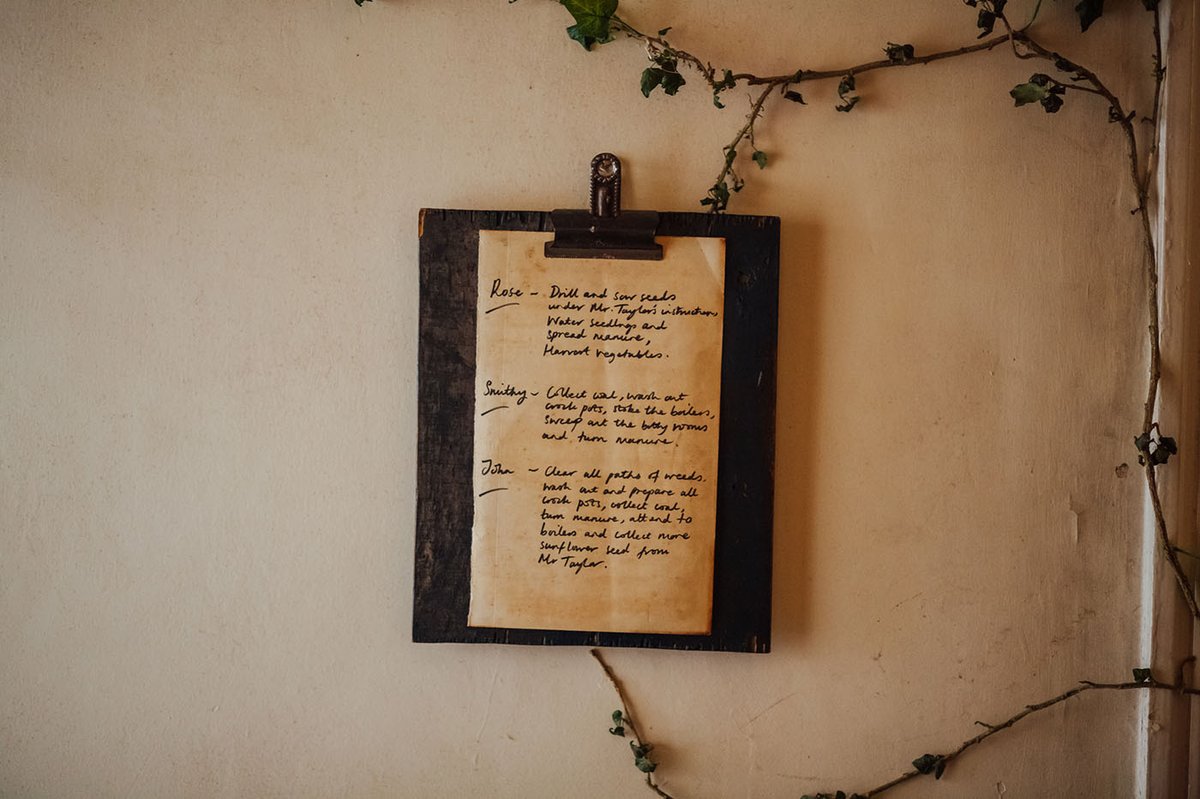 Rose - Drill and sow seeds
under Mr. Taylor's instruction,
Water seedlings and
spread manure,
Harvest vegetables.
Smithy - Collect coal, wash out
crock pots, stoke the boilers,
sweep out the bothy rooms
and turn manure.
John - Clear all paths of weeds.
wash out and prepare all
crock pots, collect coal,
turn manure, attend to
boilers and collect more
sunflower seed from
Mr Taylor.